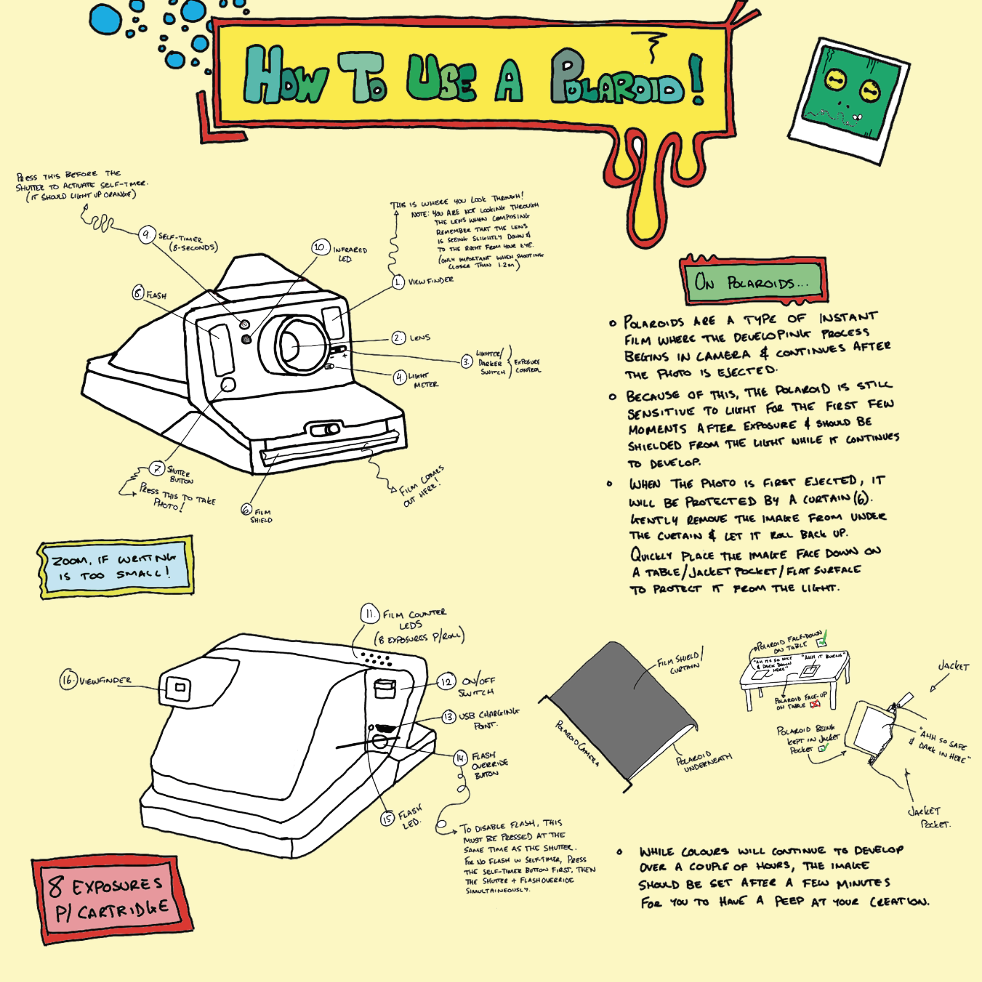 How To Use A Polaroid!
PRESS THIS BEFORE THE
SHUTTER TO ACTIVATE SELF-TIMER.
(IT SHOULD LIGHT UP ORANGE)
9. SELF-TIMER
(8-SECONDS)
10. INFRARED
LED
THIS IS WHERE YOU LOOK THROUGH!
NOTE: YOU ARE NOT LOOKING THROUGH
THE LENS WHEN COMPOSING
REMEMBER THAT THE LENS
IS SEEING SLIGHTLY DOWN &
TO THE RIGHT FROM YOUR EYE.
(ONLY IMPORTANT WHEN SHOOTING
CLOSER THAN 1.2m)
1. VIEWFINDER
8 FLASH
2. LENS
3. LIGHTER/
DARKER
SWITCH
EXPOSURE
CONTROL
4 LIGHT
METER
7 SHUTTER
BUTTON
PRESS THIS TO TAKE
PHOTO!
6 FILM
SHIELD
FILM COMES
OUT HERE!
ZOOM, IF WRITING
IS TOO SMALL!
ON POLAROIDS...
POLAROIDS ARE A TYPE OF INSTANT
FILM WHERE THE DEVELOPING PROCESS
BEGINS IN CAMERA & CONTINUES AFTER
THE PHOTO IS EJECTED.
BECAUSE OF THIS, THE POLAROID IS STILL
SENSITIVE TO LIGHT FOR THE FIRST FEW
MOMENTS AFTER EXPOSURE & SHOULD BE
SHIELDED FROM THE LIGHT WHILE IT CONTINUES
TO DEVELOP.
WHEN THE PHOTO IS FIRST EJECTED, IT
WILL BE PROTECTED BY A CURTAIN (6).
GENTLY REMOVE THE IMAGE FROM UNDER
THE CURTAIN & LET IT ROLL BACK UP.
QUICKLY PLACE THE IMAGE FACE DOWN ON
A TABLE/JACKET POCKET/FLAT SURFACE
TO PROTECT IT FROM THE LIGHT.
11. FILM COUNTER
LEDS
(8 EXPOSURES P/ROLL)
16. VIEWFINDER
12 ON/OFF
SWITCH
13 USB CHARGING
POINT.
14 FLASH
OVERRIDE
BUTTON
15 FLASH
LED.
TO DISABLE FLASH, THIS
MUST BE PRESSED AT THE
SAME TIME AS THE SHUTTER.
FOR NO FLASH IN SELF-TIMER, PRESS
THE SELF-TIMER BUTTON FIRST, THEN
THE SHUTTER + FLASH OVERRIDE
SIMULTAINEOUSLY.
8 EXPOSURES
P/ CARTRIDGE
FILM SHIELD/
CURTAIN
POLAROID CAMERA
POLAROID
UNDERNEATH
POLAROID FACE-DOWN
ON TABLE
"AH ITS SO NICE
& DARK DOWN
HERE"
"AHH IT BURNS"
POLAROID FACE-UP
ON TABLE
POLAROID BEING
KEPT IN JACKET
POCKET
JACKET
"AHH SO SAFE
& DARK IN HERE"
JACKET
POCKET.
WHILE COLOURS WILL CONTINUE TO DEVELOP
OVER A COUPLE OF HOURS, THE IMAGE
SHOULD BE SET AFTER A FEW MINUTES
FOR YOU TO HAVE A PEEP AT YOUR CREATION.